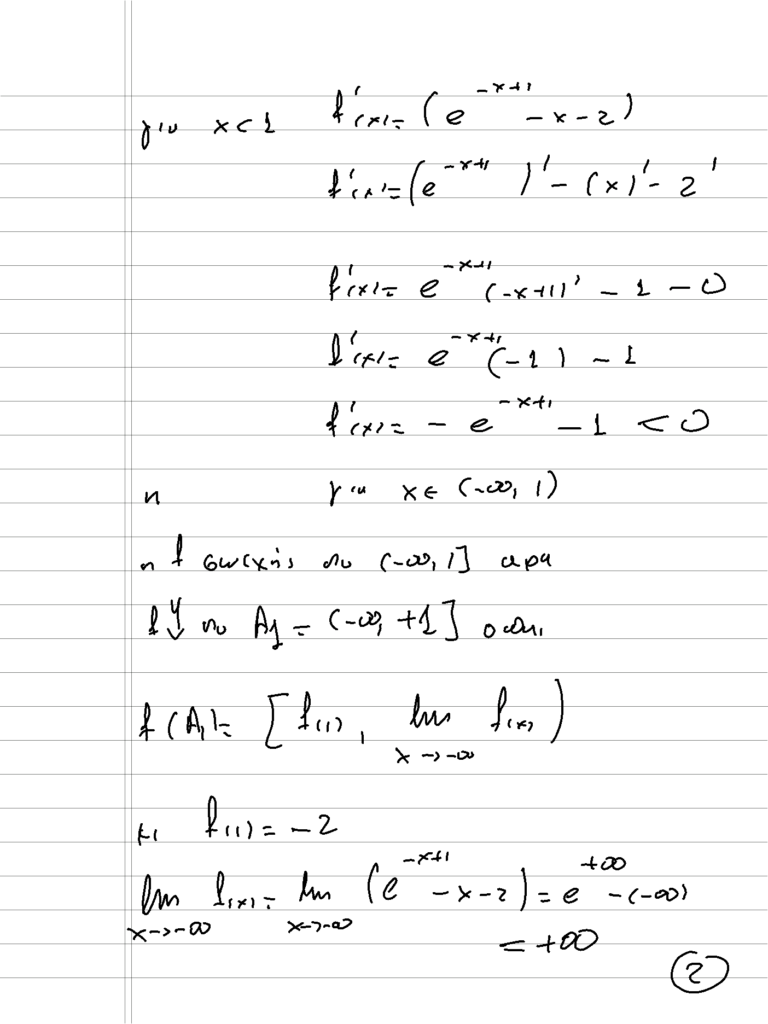 για x<1 f'(x)=(e^{-x+1} -x-2)
f'(x)=(e^{-x+1})'-(x)'-2'
f'(x)= e^{-x+1}(-x+1)'-1-0
f'(x)= e^{-x+1}(-1)-1
f'(x)= -e^{-x+1}-1<0
η για x∈(-∞,1)
η f συνεχής στο (-∞,1] αρα
f↓ στο A₁=(-∞,+1] οποτε
f(A₁)=[f(1), lim_{x→-∞} f(x))
κι f(1)=-2
lim_{x→-∞} f(x)= lim_{x→-∞} (e^{-x+1}-x-2)=e^{+∞}-(-∞)
=+∞
②